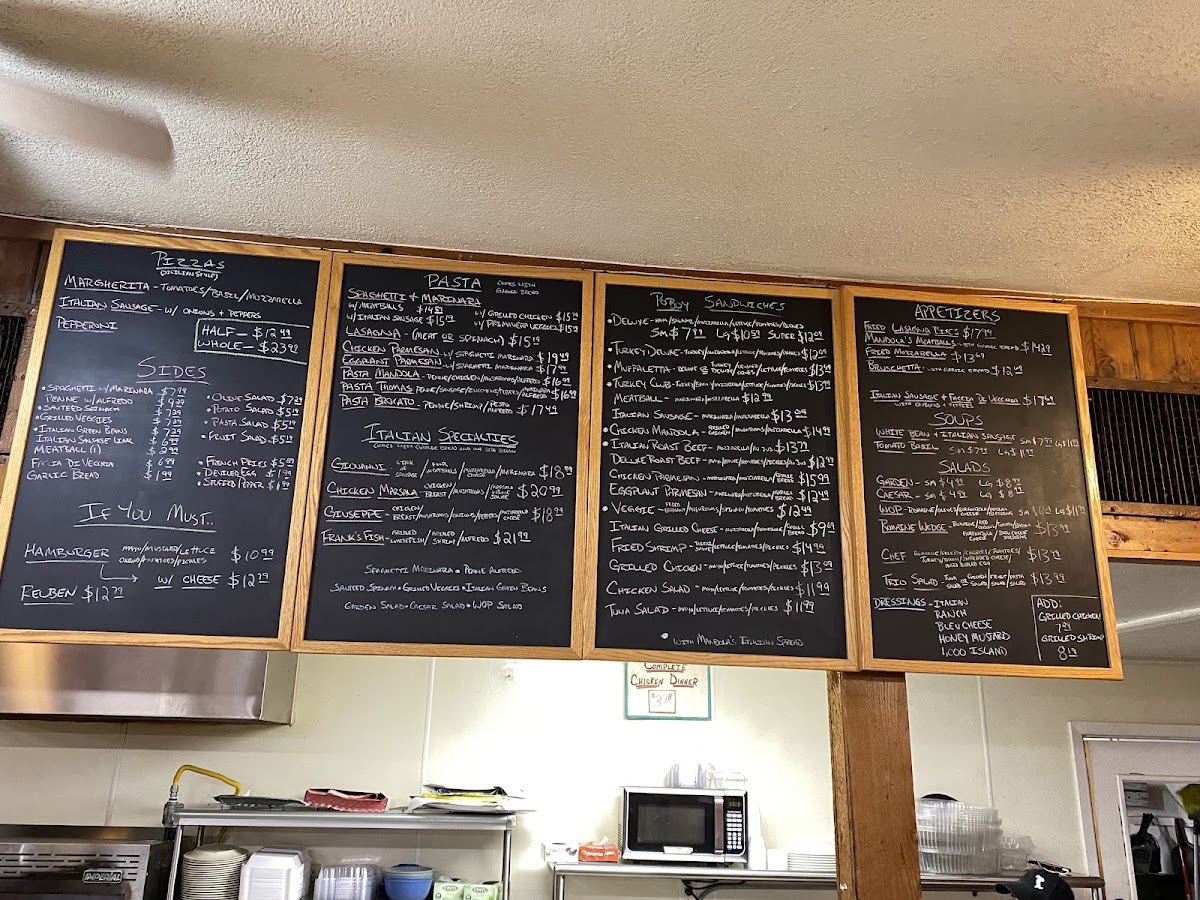 PIZZAS
(SICILIAN STYLE)
MARGHERITA - TOMATOES/BASIL/MOZZARELLA
ITALIAN SAUSAGE - W/ ONIONS + PEPPERS
PEPPERONI
HALF - $12.49
WHOLE - $23.99
SIDES
• SPAGHETTI W/ MARINARA $7.99
PENNE W/ ALFREDO $9.29
• SAUTEED SPINACH $7.29
• GRILLED VEGGIES $7.29
• ITALIAN GREEN BEANS $7.29
ITALIAN SAUSAGE LINK $6.99
MEATBALL (1) $2.99
FAGIA DI VECCHIA $6.99
GARLIC BREAD $1.99
• OLIVE SALAD $7.29
• POTATO SALAD $5.19
• PASTA SALAD $5.19
• FRUIT SALAD $5.19
• FRENCH FRIES $5.09
• DEVILED EGG $1.99
• STUFFED PEPPER $1.99
IF YOU MUST..
HAMBURGER MAYO/MUSTARD/LETTUCE $10.99
ONIONS/TOMATOES/PICKLES
W/ CHEESE $12.29
REUBEN $12.79
PASTA COMES WITH
GARLIC BREAD
SPAGHETTI + MARINARA
W/ MEATBALLS $14.89
W/ ITALIAN SAUSAGE $15.19
W/ GRILLED CHICKEN $15.19
W/ PRIMAVERA VEGGIES $15.19
LASAGNA - (MEAT OR SPINACH) $15.19
CHICKEN PARMESAN W/ SPAGHETTI MARINARA $19.49
EGGPLANT PARMESAN W/ SPAGHETTI MARINARA $17.99
PASTA MANDOLA - PENNE/CHICKEN/MUSHROOMS/ALFREDO $16.99
PASTA THOMAS - PENNE/SAUSAGE/ZUCCHINI/PEAS/ALFREDO $16.99
PASTA BROCATO - PENNE/SHRIMP/PESTO ALFREDO $17.49
ITALIAN SPECIALTIES
COMES WITH GARLIC BREAD AND ONE SIDE BELOW
GIOVANNI - LINK OF SAUSAGE/FOUR MEATBALLS/MOZZARELLA CHEESE/MARINARA $18.99
CHICKEN MARSALA CHICKEN BREAST/MUSHROOMS/MARSALA WINE SAUCE $20.99
GIUSEPPE - CHICKEN BREAST/MUSHROOMS/ONIONS/PEPPERS/MOZZARELLA CHEESE $18.39
FRANK'S FISH - GRILLED WHITEFISH/GRILLED SHRIMP/ALFREDO $21.99
SPAGHETTI MARINARA • PENNE ALFREDO
SAUTEED SPINACH • GRILLED VEGGIES • ITALIAN GREEN BEANS
GARDEN SALAD • CAESAR SALAD • WOP SALAD
POBOY SANDWICHES
• DELUXE - HAM/SALAMI/MOZZARELLA/LETTUCE/TOMATOES/PICKLES
SM $7.99 LG $10.59 SUPER $12.09
• TURKEY DELUXE - TURKEY/MOZZARELLA/LETTUCE/TOMATOES/PICKLES $12.09
• MUFFALETTA - DELUXE OR TURKEY DELUXE $13.99
• TURKEY CLUB - TURKEY/HAM/MOZZARELLA/LETTUCE/TOMATOES/PICKLES $13.49
MEATBALL - MARINARA/MOZZARELLA $12.99
ITALIAN SAUSAGE - MARINARA/MOZZARELLA $13.09
• CHICKEN MANDOLA - GRILLED CHICKEN $14.99
• ITALIAN ROAST BEEF - MOZZARELLA/AU JUS $13.79
DELUXE ROAST BEEF - MAYO/LETTUCE/TOMATOES/PICKLES/AU JUS $12.99
CHICKEN PARMESAN - MARINARA/MOZZARELLA/GARLIC BREAD $15.99
EGGPLANT PARMESAN - MARINARA/MOZZARELLA/GARLIC BREAD $12.49
• VEGGIE - $12.49
ITALIAN GRILLED CHEESE - MOZZARELLA/PARMESAN/GARLIC BREAD $9.69
FRIED SHRIMP - TARTAR SAUCE/LETTUCE/TOMATOES/PICKLES $14.99
GRILLED CHICKEN - MAYO/LETTUCE/TOMATOES/PICKLES $13.09
CHICKEN SALAD - MAYO/LETTUCE/TOMATOES/PICKLES $11.99
TUNA SALAD - MAYO/LETTUCE/TOMATOES/PICKLES $11.99
• WITH MANDOLA'S ITALIAN SPREAD
APPETIZERS
FRIED LASAGNA BITES $17.79
MANDOLA'S MEATBALLS - WITH GARLIC BREAD $14.29
FRIED MOZZARELLA $13.69
BRUSCHETTA - WITH GARLIC BREAD $12.69
ITALIAN SAUSAGE + FAGIA DI VECCHIA $17.49
WITH ONIONS + PEPPERS
SOUPS
WHITE BEAN + ITALIAN SAUSAGE SM $7.99 LG $11.99
TOMATO BASIL SM $7.99 LG $11.99
SALADS
GARDEN - SM $4.99 LG $8.99
CAESAR - SM $4.99 LG $8.99
WOP - SM $10.99 LG $11.99
ROMAINE WEDGE - $13.99
CHEF $13.79
TRIO SALAD - TUNA OR CHICKEN SALAD/FRUIT SALAD/PASTA SALAD $13.99
DRESSINGS - ITALIAN
RANCH
BLEU CHEESE
HONEY MUSTARD
1,000 ISLAND
ADD:
GRILLED CHICKEN
7.29
GRILLED SHRIMP
8.19
COMPLETE
CHICKEN DINNER
IMPERIAL